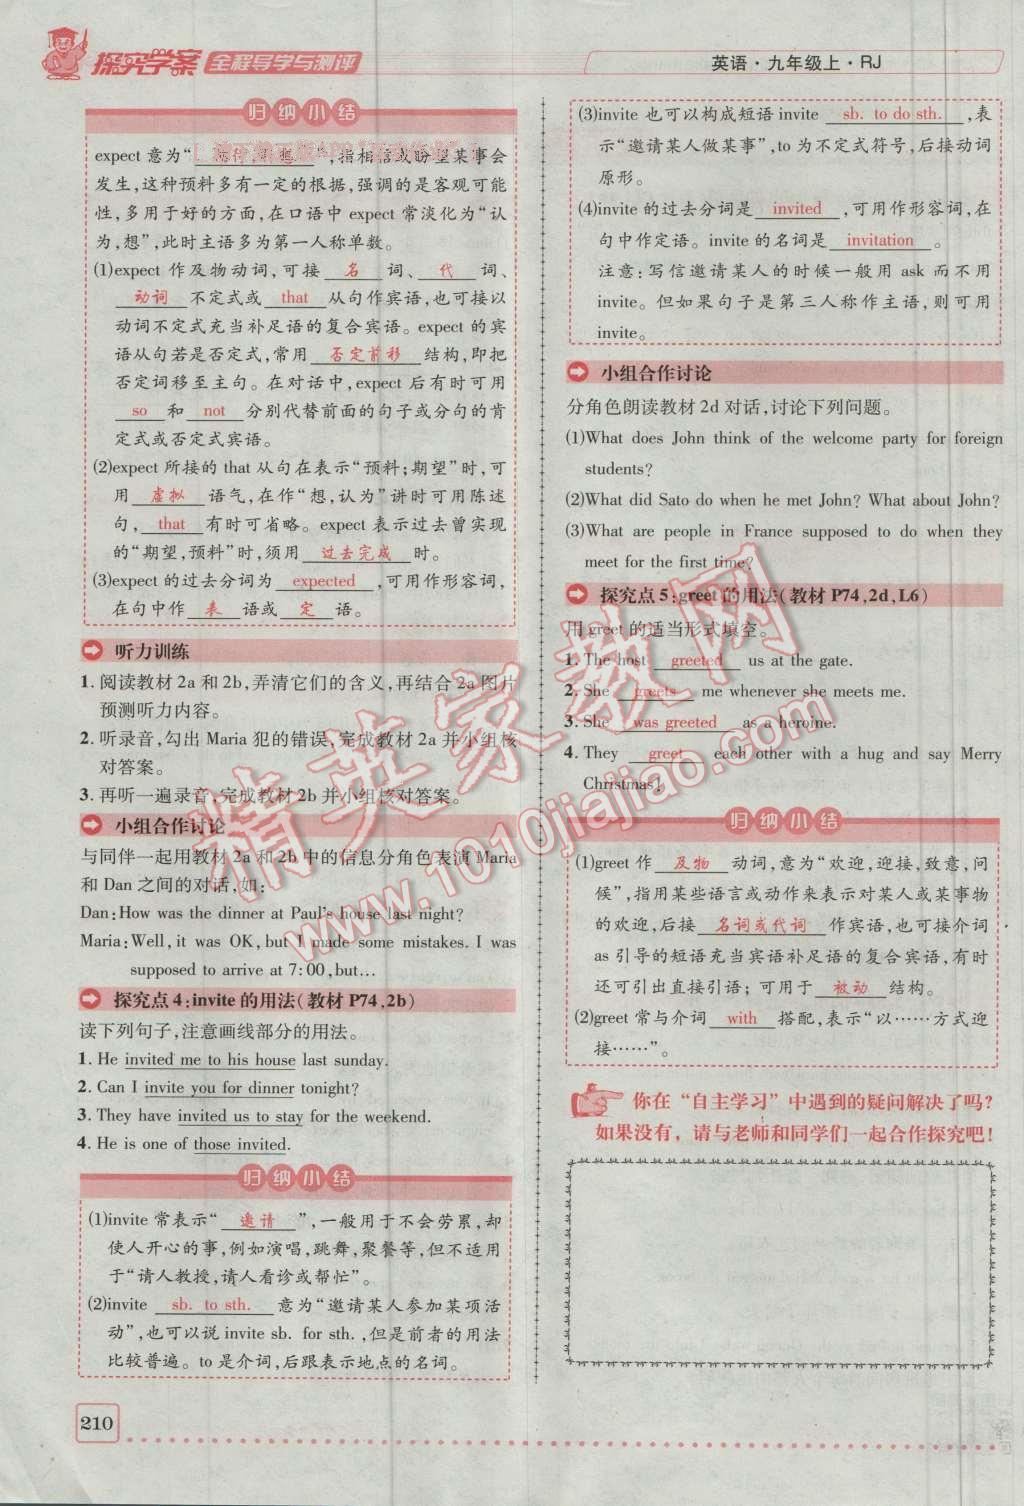 探究学案 全程导学与测评
英语·九年级上·RJ
归纳小结
expect 意为“ 期待,预料 ”,指相信或盼望某事会
发生,这种预料多有一定的根据,强调的是客观可能
性,多用于好的方面,在口语中 expect 常淡化为“认
为,想”,此时主语多为第一人称单数。
(1)expect 作及物动词,可接 名 词、 代 词、
动词 不定式或 that 从句作宾语,也可接以
动词不定式充当补足语的复合宾语。expect 的宾
语从句若是否定式,常用 否定前移 结构,即把
否定词移至主句。在对话中,expect 后有时可用
so 和 not 分别代替前面的句子或分句的肯
定式或否定式宾语。
(2)expect 所接的 that 从句在表示“预料;期望”时,可
用 虚拟 语气,在作“想,认为”讲时可用陈述
句, that 有时可省略。expect 表示过去曾实现
的“期望,预料”时,须用 过去完成 时。
(3)expect 的过去分词为 expected ,可用作形容词,
在句中作 表 语或 定 语。
听力训练
1. 阅读教材 2a 和 2b,弄清它们的含义,再结合 2a 图片
预测听力内容。
2. 听录音,勾出 Maria 犯的错误,完成教材 2a 并小组核
对答案。
3. 再听一遍录音,完成教材 2b 并小组核对答案。
小组合作讨论
与同伴一起用教材 2a 和 2b 中的信息分角色表演 Maria
和 Dan 之间的对话,如:
Dan:How was the dinner at Paul's house last night?
Maria:Well,it was OK,but I made some mistakes. I was
supposed to arrive at 7:00,but…
探究点 4:invite 的用法(教材 P74,2b)
读下列句子,注意画线部分的用法。
1. He invited me to his house last sunday.
2. Can I invite you for dinner tonight?
3. They have invited us to stay for the weekend.
4. He is one of those invited.
归纳小结
(1)invite 常表示“ 邀请 ”,一般用于不会劳累,却
使人开心的事,例如演唱,跳舞,聚餐等,但不适用
于“请人教授,请人看诊或帮忙”。
(2)invite sb. to sth. 意为“邀请某人参加某项活
动”,也可以说 invite sb. for sth. ,但是前者的用法
比较普遍。to 是介词,后跟表示地点的名词。
210
(3)invite 也可以构成短语 invite sb. to do sth. ,表
示“邀请某人做某事”,to 为不定式符号,后接动词
原形。
(4)invite 的过去分词是 invited ,可用作形容词,在
句中作定语。invite 的名词是 invitation 。
注意:写信邀请某人的时候一般用 ask 而不用
invite。但如果句子是第三人称作主语,则可用
invite。
小组合作讨论
分角色朗读教材 2d 对话,讨论下列问题。
(1)What does John think of the welcome party for foreign
students?
(2)What did Sato do when he met John? What about John?
(3)What are people in France supposed to do when they
meet for the first time?
探究点 5:greet 的用法(教材 P74,2d,L6)
用 greet 的适当形式填空。
1. The host greeted us at the gate.
2. She greets me whenever she meets me.
3. She was greeted as a heroine.
4. They greet each other with a hug and say Merry
Christmas!
归纳小结
(1)greet 作 及物 动词,意为“欢迎,迎接,致意,问
候”,指用某些语言或动作来表示对某人或某事物
的欢迎,后接 名词或代词 作宾语,也可接介词
as 引导的短语充当宾语补足语的复合宾语,有时
还可引出直接引语;可用于 被动 结构。
(2)greet 常与介词 with 搭配,表示“以……方式迎
接……”。
你在“自主学习”中遇到的疑问解决了吗?
如果没有,请与老师和同学们一起合作探究吧!
精英家教网
www.1010jiajiao.com